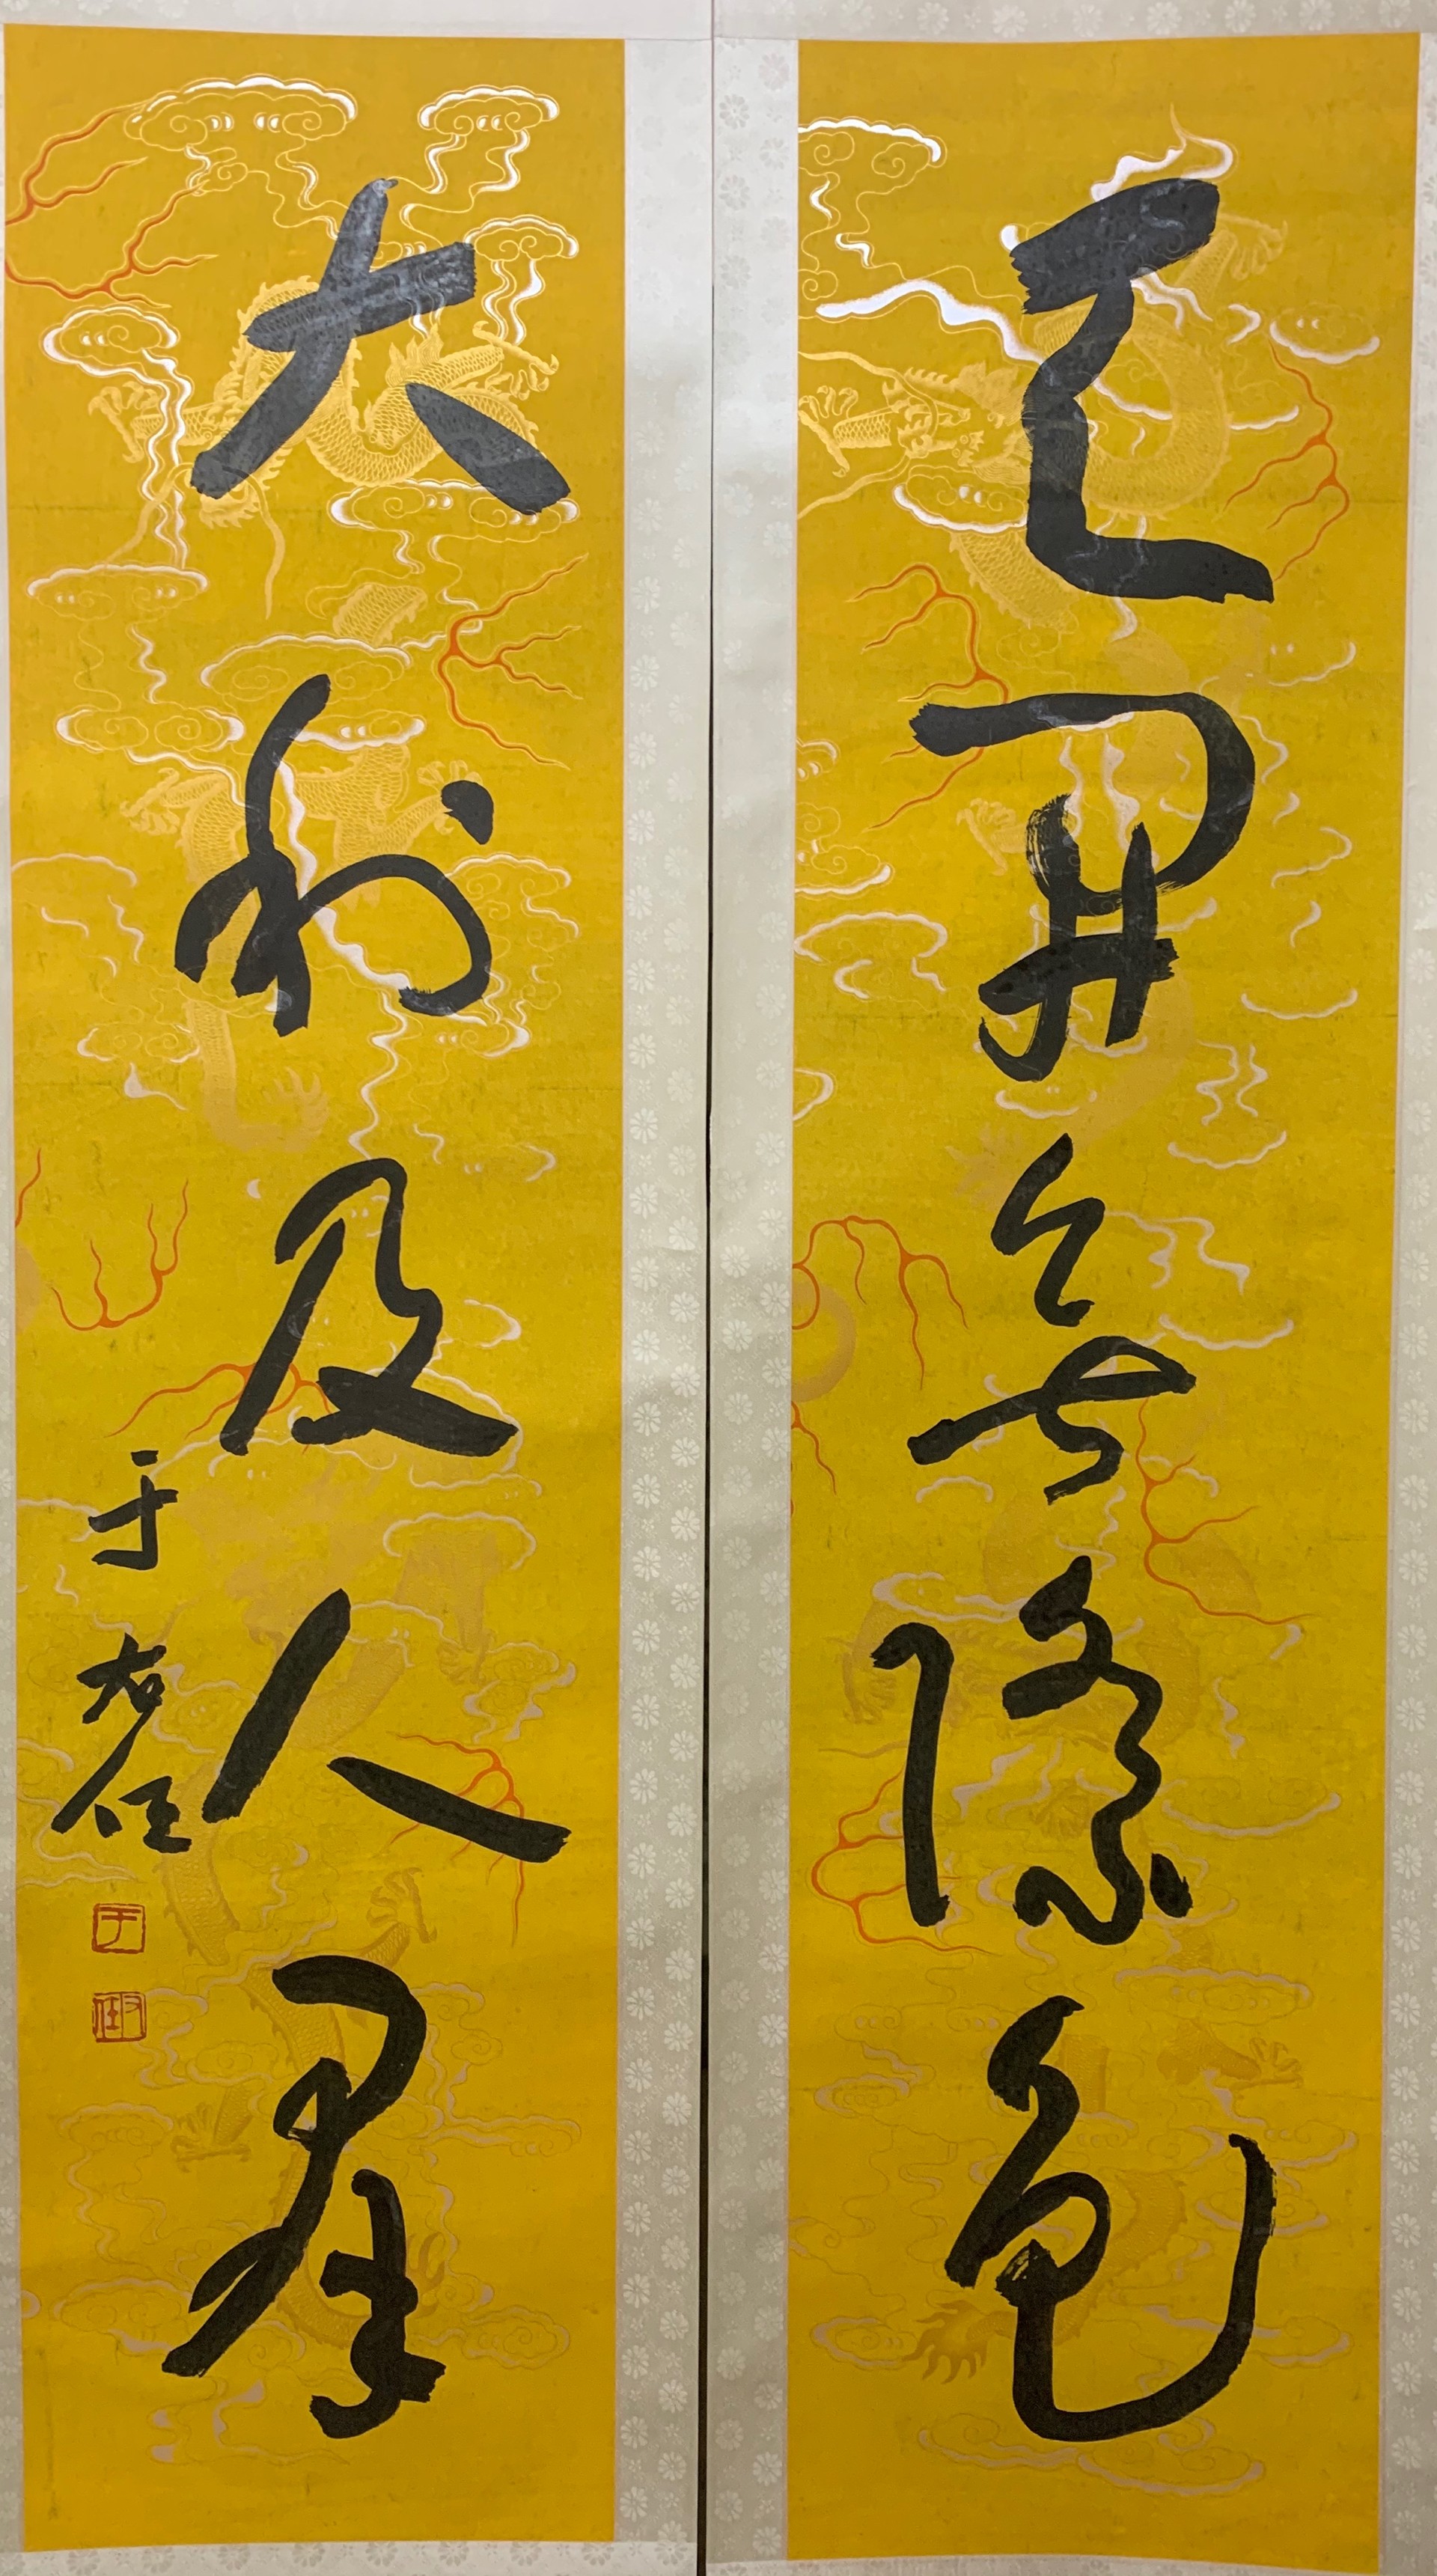 天開無際色
大利及人群
于右任